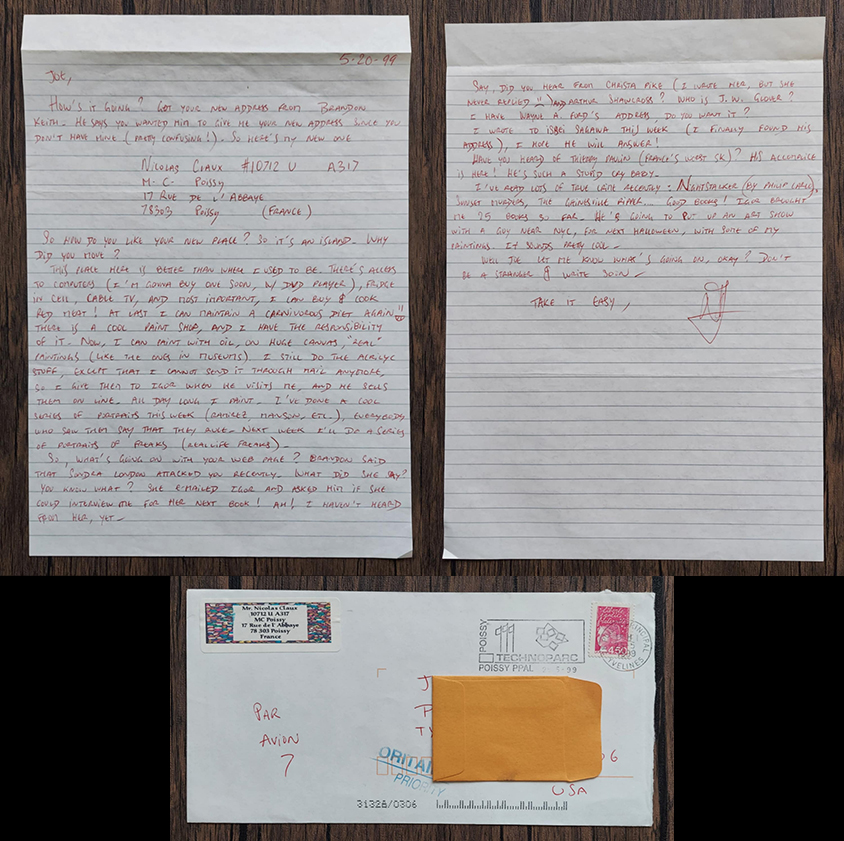 5-20-99
JOE,
HOW'S IT GOING? GOT YOUR NEW ADDRESS FROM BRANDON
KEITH. HE SAYS YOU WANTED HIM TO GIVE ME YOUR NEW ADDRESS SINCE YOU
DON'T HAVE MINE (PRETTY CONFUSING!). SO HERE'S MY NEW ONE
NICOLAS CLAUX #10712 U A317
M-C- POISSY
17 RUE DE L'ABBAYE
78303 POISSY (FRANCE)
SO HOW DO YOU LIKE YOUR NEW PLACE? SO IT'S AN ISLAND- WHY
DID YOU MOVE?
THIS PLACE HERE IS BETTER THAN WHERE I USED TO BE. THERE'S ACCESS
TO COMPUTERS (I'M GONNA BUY ONE SOON, W/ DVD PLAYER), FRIDGE
IN CELL, CABLE TV, AND MOST IMPORTANT, I CAN BUY & COOK
RED MEAT! AT LAST I CAN MAINTAIN A CARNIVOROUS DIET AGAIN!!
THERE IS A COOL PAINT SHOP, AND I HAVE THE RESPONSIBILITY
OF IT- NOW, I CAN PAINT WITH OIL, ON HUGE CANVAS, "REAL"
PAINTINGS (LIKE THE ONES IN MUSEUMS) I STILL DO THE ACRILYC
STUFF, EXCEPT THAT I CANNOT SEND IT THROUGH MAIL ANYMORE,
SO I GIVE THEM TO IGOR WHEN HE VISITS ME, AND HE SELLS
THEM ON LINE- ALL DAY LONG I PAINT- I'VE DONE A COOL
SERIES OF PORTRAITS THIS WEEK (RAMIREZ, MANSON, ETC.), EVERYBODY
WHO SAW THEM SAY THAT THEY RULE- NEXT WEEK I'LL DO A SERIES
OF PORTRAITS OF FREAKS (REAL LIFE FREAKS)-
SO, WHAT'S GOING ON WITH YOUR WEB PAGE? BRANDON SAID
THAT SONDRA LONDON ATTACKED YOU RECENTLY- WHAT DID SHE SAY?
YOU KNOW WHAT? SHE E-MAILED IGOR AND ASKED HIM IF SHE
COULD INTERVIEW ME FOR HER NEXT BOOK! AH! I HAVEN'T HEARD
FROM HER, YET-
SAY, DID YOU HEAR FROM CHRISTA PIKE (I WRITE HER, BUT SHE
NEVER REPLIED!!) AND ARTHUR SHAWCROSS? WHO IS J.W. GLOVER?
I HAVE WAYNE A. FORD'S ADDRESS, DO YOU WANT IT?
I WROTE TO ISSEI SAGAWA THIS WEEK (I FINALLY FOUND HIS
ADDRESS), I HOPE HE WILL ANSWER!
HAVE YOU HEARD OF THIERRY PAULIN (FRANCE'S WORST SK)? HIS ACCOMPLICE
IS HERE! HE'S SUCH A STUPID CRY BABY-
I'VE READ LOTS OF TRUE CRIME RECENTLY: NIGHTSTALKER (BY PHILIP CARLO),
SUNSET MURDERS, THE GAINESVILLE RIPPER- GOOD BOOKS! IGOR BROUGHT
ME 25 BOOKS SO FAR- HE'S GOING TO PUT UP AN ART SHOW
WITH A GUY NEAR NYC, FOR NEXT HALLOWEEN, WITH SOME OF MY
PAINTINGS. IT SOUNDS PRETTY COOL-
WELL JOE LET ME KNOW WHAT'S GOING ON, OKAY? DON'T
BE A STRANGER & WRITE SOON-
TAKE IT EASY,
Mr. Nicolas Claux
10712 U A317
MC Poissy
17 Rue de l' Abbaye
78 303 Poissy
France
POISSY
TECHNOPARC
POISSY PPAL
YVELINES
PAR
AVION
7
J
P
TY
6
USA
PRIORITY
31328/0306